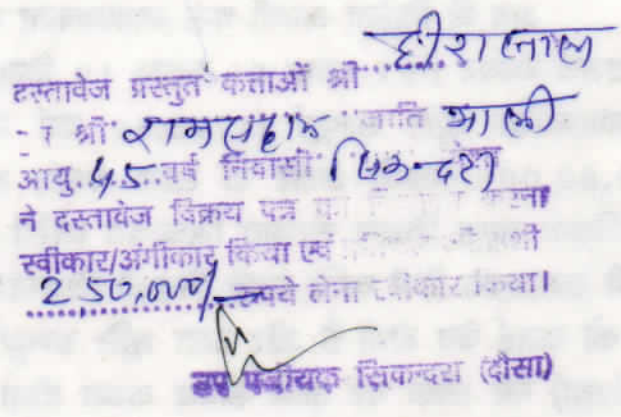 हीरालाल
दस्तावेज प्रस्तुत कर्त्ताओं श्री
श्री रामसहाय जाति माली
आयु 45 वर्ष निवासी सिकन्दरा
ने दस्तावेज विक्रय पत्र का करना
स्वीकार/अंगीकार किया एवं
250,000/- रूपये लेना स्वीकार किया।
उप पंजीयक सिकन्दरा (दौसा)